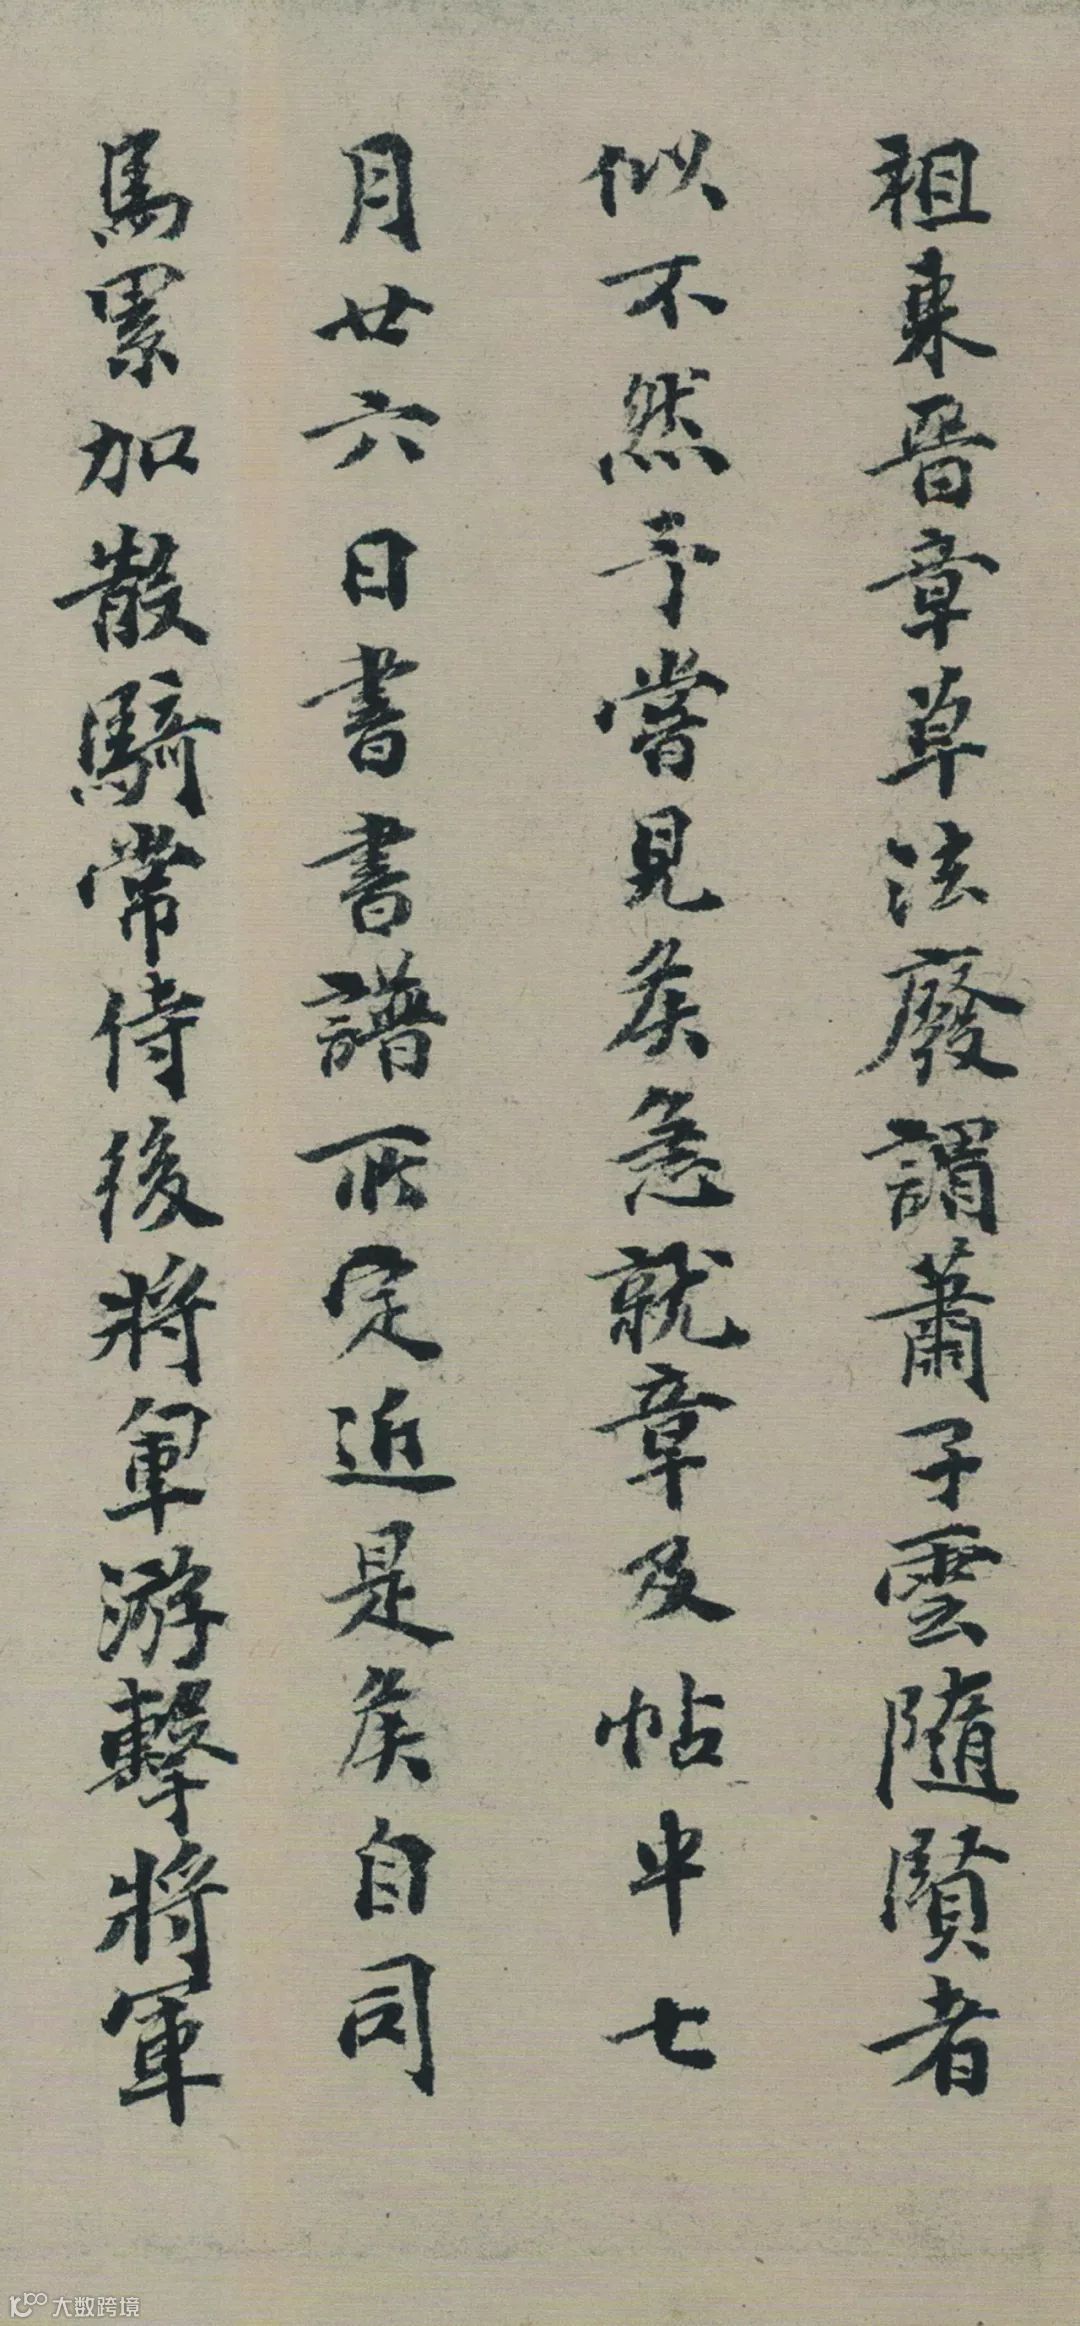 祖東晉章草法廢謂蕭子雲隨賢者
似不然予嘗見矦急就章及帖中七
月廿六日書書譜所定近是矦自司
馬累加散騎常侍後將軍游擊將軍
大数跨境